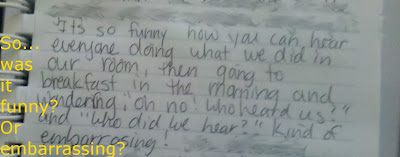 It's so funny how you can hear
everyone doing what we did in
our room, then going to
breakfast in the morning and
wondering, oh no! who heard us?"
and "who did we hear?" kind of
embarrassing!
So...
was
it
funny?
Or
embarrassing?